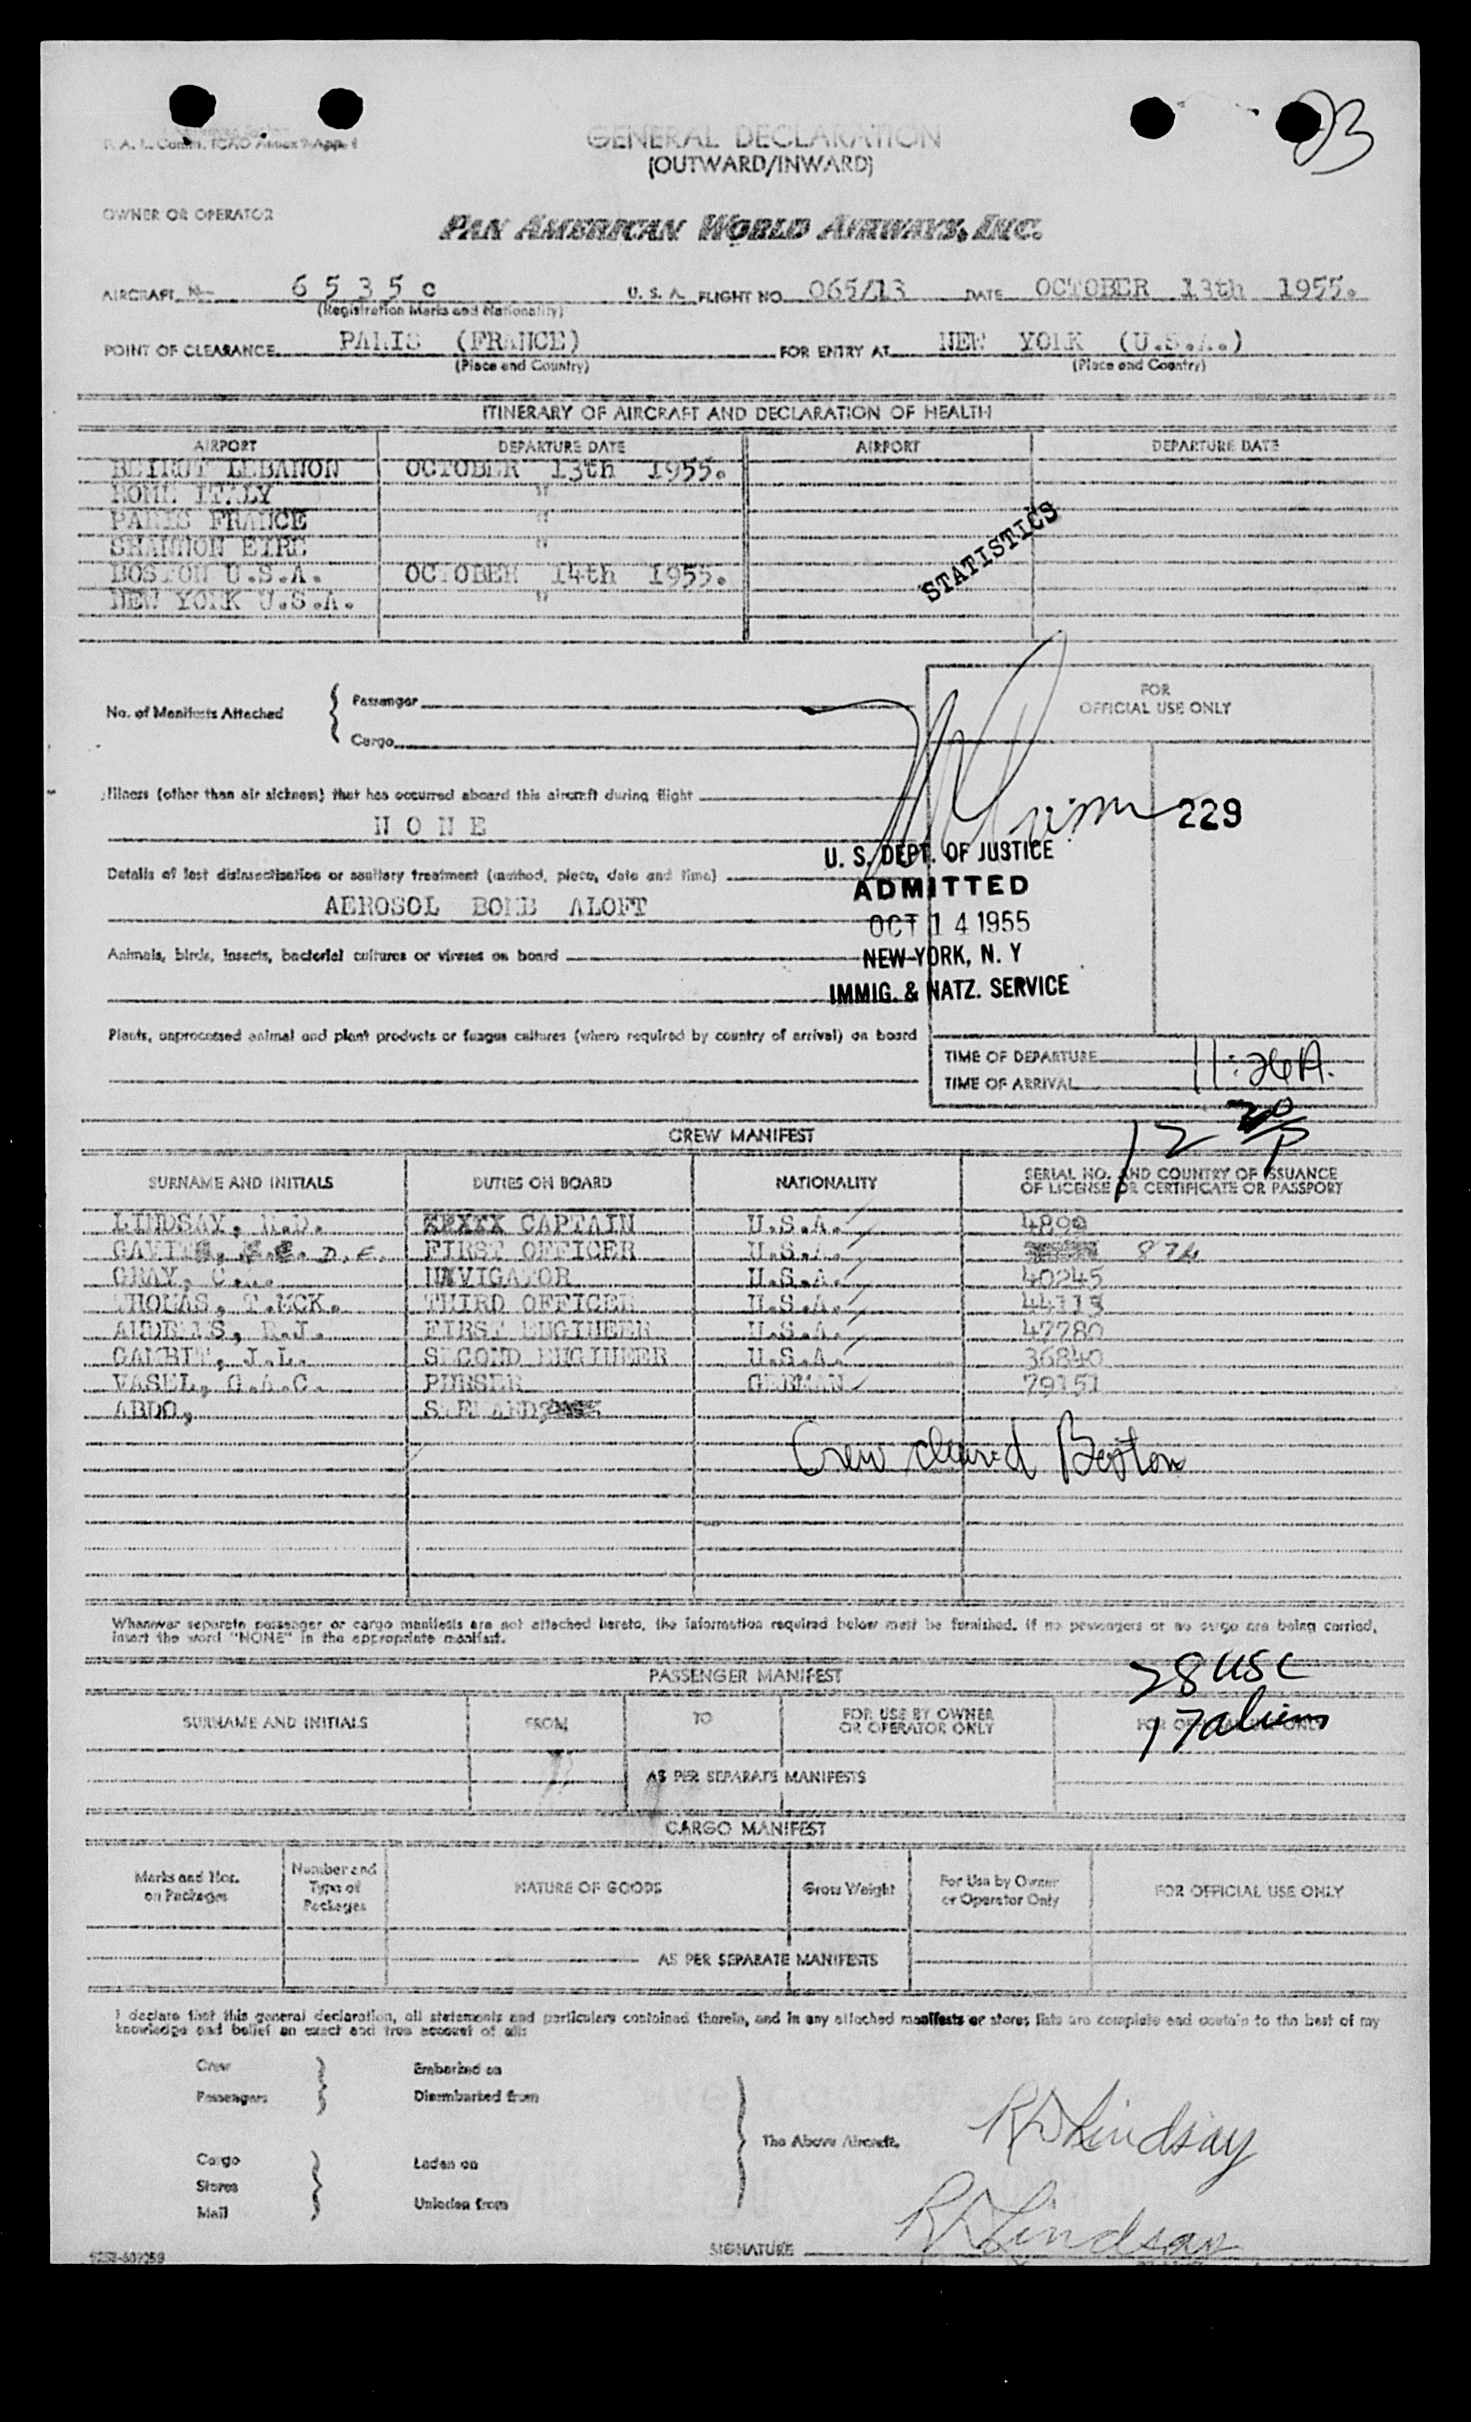 23
P. A. I. Comm. ICAO Annex 9-App. 1
GENERAL DECLARATION
(OUTWARD/INWARD)
OWNER OR OPERATOR
PAN AMERICAN WORLD AIRWAYS, INC.
AIRCRAFT N- 6 5 3 5 c U. S. A. FLIGHT NO. 065/13 DATE OCTOBER 13th 1955.
(Registration Marks and Nationality)
POINT OF CLEARANCE PARIS (FRANCE) FOR ENTRY AT NEW YORK (U.S.A.)
(Place and Country) (Place and Country)
ITINERARY OF AIRCRAFT AND DECLARATION OF HEALTH
AIRPORT DEPARTURE DATE AIRPORT DEPARTURE DATE
BEIRUT LEBANON OCTOBER 13th 1955.
ROME ITALY "
PARIS FRANCE "
SHANNON EIRE "
BOSTON U.S.A. OCTOBER 14th 1955.
NEW YORK U.S.A. "
STATISTICS
No. of Manifests Attached { Passenger
Cargo
FOR
OFFICIAL USE ONLY
Illness (other than air sickness) that has occurred aboard this aircraft during flight
N O N E
229
Details of last disinsectization or sanitary treatment (method, place, date and time)
AEROSOL BOMB ALOFT
U. S. DEPT. OF JUSTICE
ADMITTED
OCT 14 1955
NEW YORK, N. Y
IMMIG. & NATZ. SERVICE
Animals, birds, insects, bacterial cultures or viruses on board
Plants, unprocessed animal and plant products or fungus cultures (where required by country of arrival) on board
TIME OF DEPARTURE 11:26A.
TIME OF ARRIVAL
12 20/P
CREW MANIFEST
SURNAME AND INITIALS DUTIES ON BOARD NATIONALITY SERIAL NO. AND COUNTRY OF ISSUANCE
OF LICENSE OR CERTIFICATE OR PASSPORT
LINDSAY, R.D. CAPTAIN U.S.A. 4890
D.E. FIRST OFFICER U.S.A. 874
GRAY, NAVIGATOR U.S.A. 40245
THOMAS, T.MCK. THIRD OFFICER U.S.A. 44113
ANDREWS, R.J. FIRST ENGINEER U.S.A. 47780
GAMBIT, J.L. SECOND ENGINEER U.S.A. 36840
VASEL, G.A.C. PURSER GERMAN 79151
ABDO, STEWARD
Crew cleared Boston
Whenever separate passenger or cargo manifests are not attached hereto, the information required below must be furnished. If no passengers or no cargo are being carried,
insert the word "NONE" in the appropriate manifest.
28 USC
17 aliens
PASSENGER MANIFEST
SURNAME AND INITIALS FROM TO FOR USE BY OWNER
OR OPERATOR ONLY FOR OFFICIAL USE ONLY
AS PER SEPARATE MANIFESTS
CARGO MANIFEST
Marks and Nos.
on Packages Number and
Type of
Packages NATURE OF GOODS Gross Weight For Use by Owner
or Operator Only FOR OFFICIAL USE ONLY
AS PER SEPARATE MANIFESTS
I declare that this general declaration, all statements and particulars contained therein, and in any attached manifests or stores lists are complete and contain to the best of my
knowledge and belief an exact and true account of all:
Crew Embarked on
Passengers Disembarked from
The Above Aircraft.
Cargo Laden on
Stores
Mail Unladen from
RD Lindsay
SIGNATURE RD Lindsay